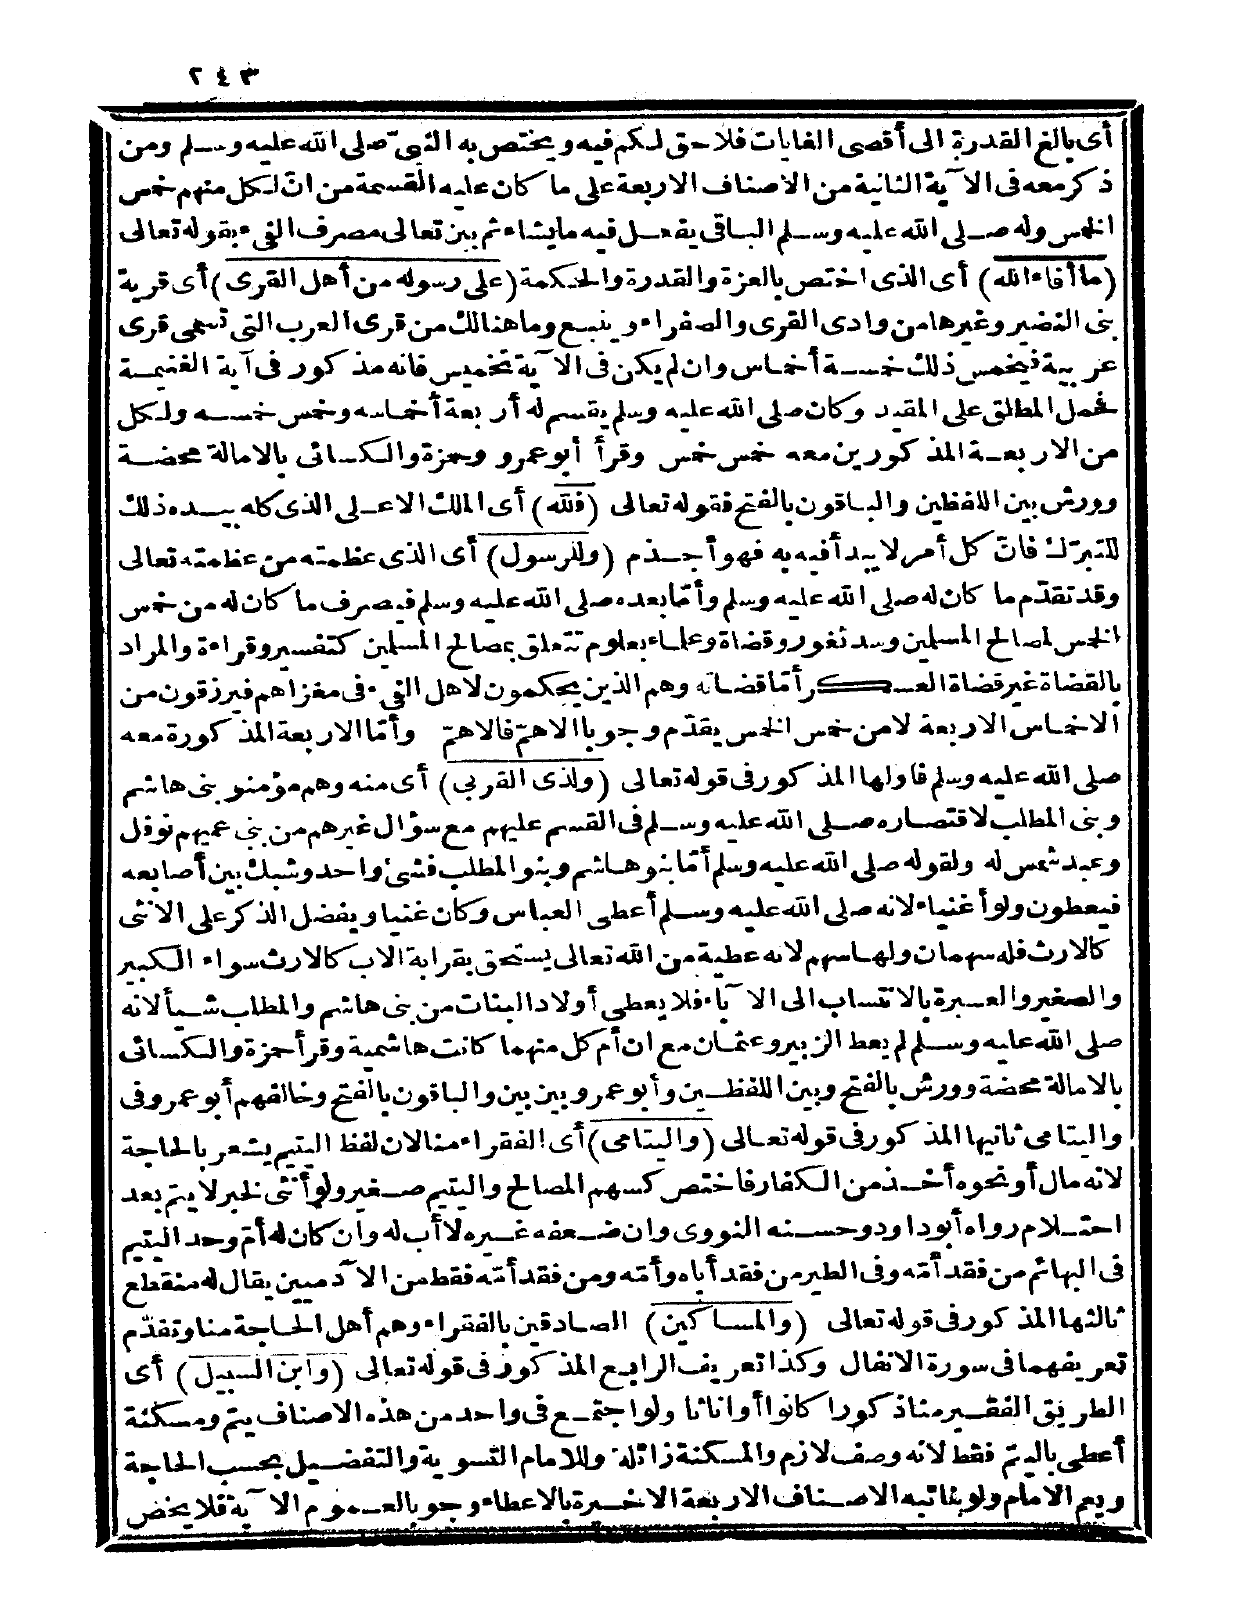 ٢٤٣
أى بالغ القدرة الى أقصى الغايات فلا حق لكم فيه ويختص به النبىّ صلى الله عليه وسلم ومن
ذكر معه فى الآية الثانية من الاصناف الاربعة على ما كان عليه القسمة من انّ لكل منهم خمس
الخمس وله صلى الله عليه وسلم الباقى يفعل فيه ما يشاء ثم بين تعالى مصرف الفىء بقوله تعالى
(ما أفاء الله) أى الذى اختص بالعزة والقدرة والحكمة (على رسوله من أهل القرى) أى قرية
بنى النضير وغيرها من وادى القرى والصفراء وينبع وما هنالك من قرى العرب التى تسمى قرى
عربية فيخمس ذلك خمسة أخماس وان لم يكن فى الآية تخميس فانه مذكور فى آية الغنيمة
فحمل المطلق على المقيد وكان صلى الله عليه وسلم يقسم له أربعة أخماسه وخمس خمسه ولكل
من الاربعة المذكورين معه خمس خمس وقرأ أبو عمرو وحمزة والكسائى بالامالة محضة
وورش بين اللفظين والباقون بالفتح فقوله تعالى (فلله) أى الملك الاعلى الذى كله بيده ذلك
للتبرّك فانّ كل أمر لا يبدأ فيه به فهو أجذم (وللرسول) أى الذى عظمته من عظمته تعالى
وقد تقدّم ما كان له صلى الله عليه وسلم وأمّا بعده صلى الله عليه وسلم فيصرف ما كان له من خمس
الخمس لمصالح المسلمين وسد ثغور وقضاة وعلماء بعلوم تتعلق بمصالح المسلمين كتفسير وقراءة والمراد
بالقضاة غير قضاة العسكر أمّا قضاته وهم الذين يحكمون لاهل الفىء فى مغزاهم فيرزقون من
الاخماس الاربعة لا من خمس الخمس يقدّم وجوبا الاهمّ فالاهمّ وأمّا الاربعة المذكورة معه
صلى الله عليه وسلم فاولها المذكور فى قوله تعالى (ولذى القربى) أى منه وهم مؤمنو بنى هاشم
وبنى المطلب لاقتصاره صلى الله عليه وسلم فى القسم عليهم مع سؤال غيرهم من بنى عميهم نوفل
وعبد شمس له ولقوله صلى الله عليه وسلم أمّا بنو هاشم وبنو المطلب فشئ واحد وشبك بين أصابعه
فيعطون ولو أغنياء لانه صلى الله عليه وسلم أعطى العباس وكان غنيا ويفضل الذكر على الانثى
كالارث فله سهمان ولها سهم لانه عطية من الله تعالى يستحق بقرابة الاب كالارث سواء الكبير
والصغير والعبرة بالانتساب الى الآباء فلا يعطى أولاد البنات من بنى هاشم والمطلب شيأ لانه
صلى الله عليه وسلم لم يعط الزبير وعثمان مع ان أم كل منهما كانت هاشمية وقرأ حمزة والكسائى
بالامالة محضة وورش بالفتح وبين اللفظين وأبو عمرو بين بين والباقون بالفتح وخالفهم أبو عمرو فى
واليتامى ثانيها المذكور فى قوله تعالى (واليتامى) أى الفقراء منا لان لفظ اليتيم يشعر بالحاجة
لانه مال أو نحوه أخذ من الكفار فاختص كسهم المصالح واليتيم صغير ولو أنثى لخبر لا يتم بعد
احتلام رواه أبو داود وحسنه النووى وان ضعفه غيره لا أب له وان كان له أم وجد اليتيم
فى البهائم من فقد أمّه وفى الطير من فقد أباه وأمّه ومن فقد أمّه فقط من الآدميين يقال له منقطع
ثالثها المذكور فى قوله تعالى (والمساكين) الصادقين بالفقراء وهم أهل الحاجة منا وتقدّم
تعريفهما فى سورة الانفال وكذا تعريف الرابع المذكور فى قوله تعالى (وابن السبيل) أى
الطريق الفقير منا ذكورا كانوا أو اناثا ولو اجتمع فى واحد من هذه الاصناف يتم ومسكنة
أعطى باليتم فقط لانه وصف لازم والمسكنة زائلة وللامام التسوية والتفضيل بحسب الحاجة
ويعم الامام ولو بنائبه الاصناف الاربعة الاخيرة بالاعطاء وجوبا لعموم الآية فلا يخص